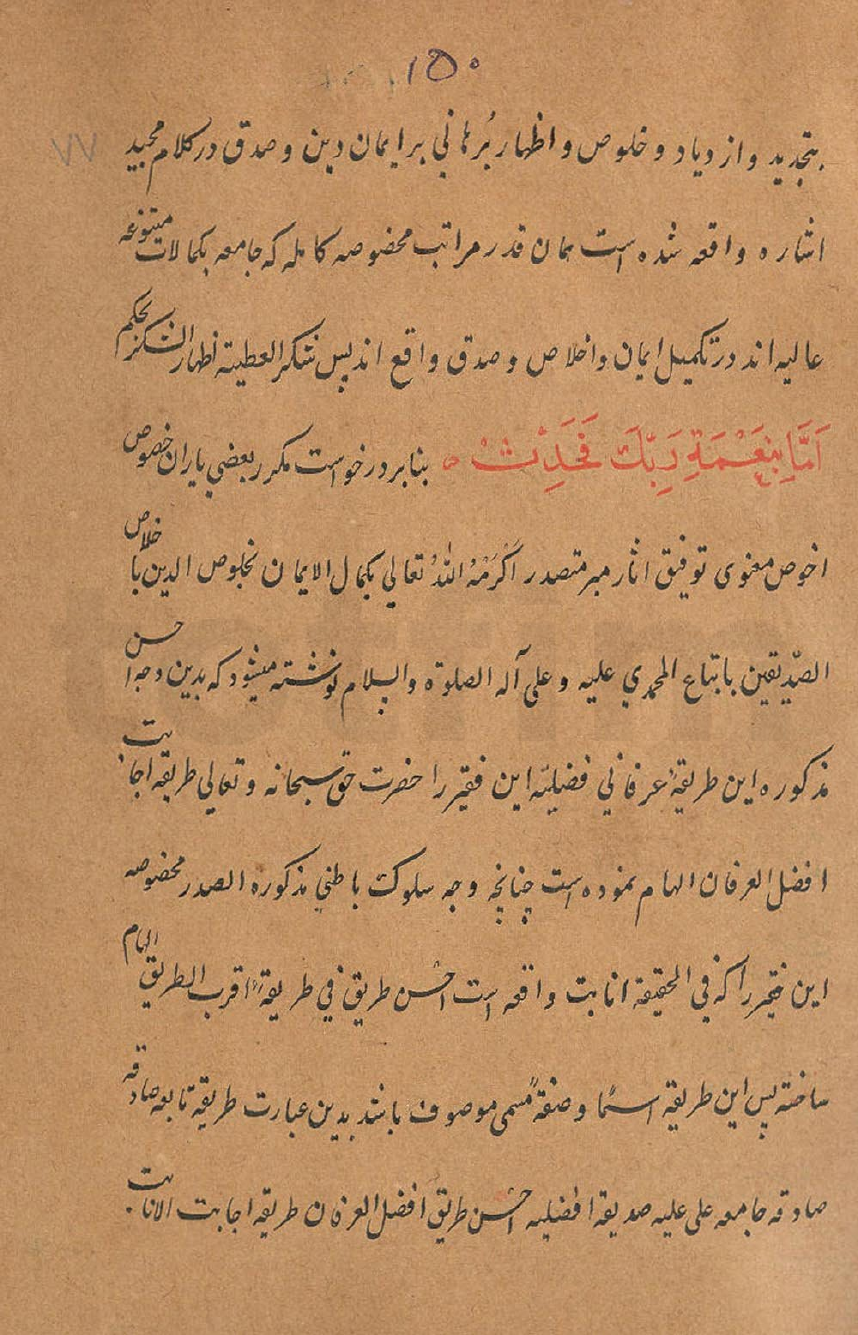 ۱۵۰
۷۷
بتجدید و ازدیاد و خلوص و اظهار بُرهانی بر ایمان دین و صدق در کلام مجید
اشاره واقعه شده است همان قدر مراتب مخصوصه کامله که جامعه بکمالات متنوعه
عالیه اند در تکمیل ایمان و اخلاص و صدق واقع اند پس شکر العطیته اظهار الشکر بحکم
اَمَّا بِنِعْمَةِ رَبِّكَ فَحَدِّثْ ه بنابر درخواست مکرر بعضی یاران خصوص
اخوص معنوی توفیق اثار میر متصدر اَکْرَمَهُ اللهُ تعالی بکمال الایمان بخلوص الدین با خلاص
الصّدیقین باتباع المحمدي علیه و علی آله الصلوة والسلام نوشته میشود که بدین وجه احسن
مذکوره این طریقهٔ عرفانی فضلیه این فقیر را حضرت حق سبحانه و تعالی طریقه اجابت
افضل العرفان الهام نموده است چنانچه وجه سلوک باطنی مذکوره الصدر مخصوصه
این فقیر را که فی الحقیقة انابت واقعه است احسن طریق فی طریقهٔ اقرب الطریق الهام
ساخته پس این طریقه اسمًا و صفةً مسمی موصوف باشد بدین عبارت طریقه تابعه صادقه
صادقه جامعه علی علیه صدیقه افضلیه احسن طریق افضل العرفان طریقه اجابت الانابت